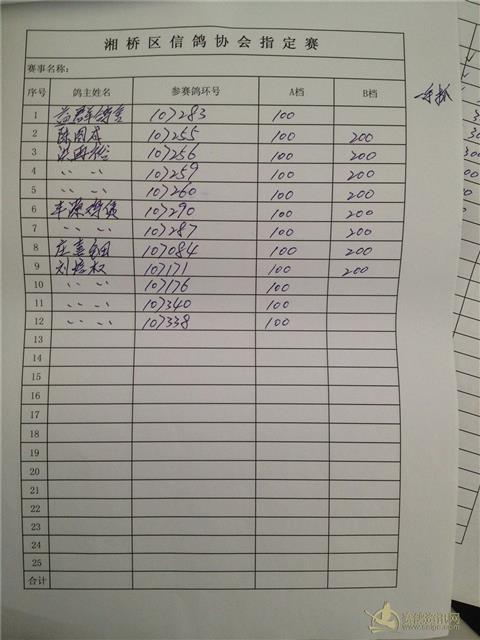 湘桥区信鸽协会指定赛
赛事名称:
序号 鸽主姓名 参赛鸽环号 A档 B档
1 益群鸽舍 107283 100
2 107255 100 200
3 107256 100 200
4 〃 〃 107259 100 200
5 〃 〃 107260 100 200
6 107290 100 200
7 〃 〃 107287 100 200
8 107084 100 200
9 107171 100 200
10 〃 〃 107176 100
11 〃 〃 107340 100
12 〃 〃 107338 100
13
14
15
16
17
18
19
20
21
22
23
24
25
合计